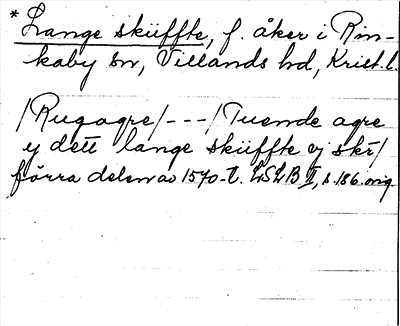 * Lange sküffte, f. åker i Rin-
kaby sn, Villands hd, Krist. l.
/Rugagre/---/Tuende agre
y dett lange sküffte
förra delen av 1570-t. LSLB II, s. 186. orig.